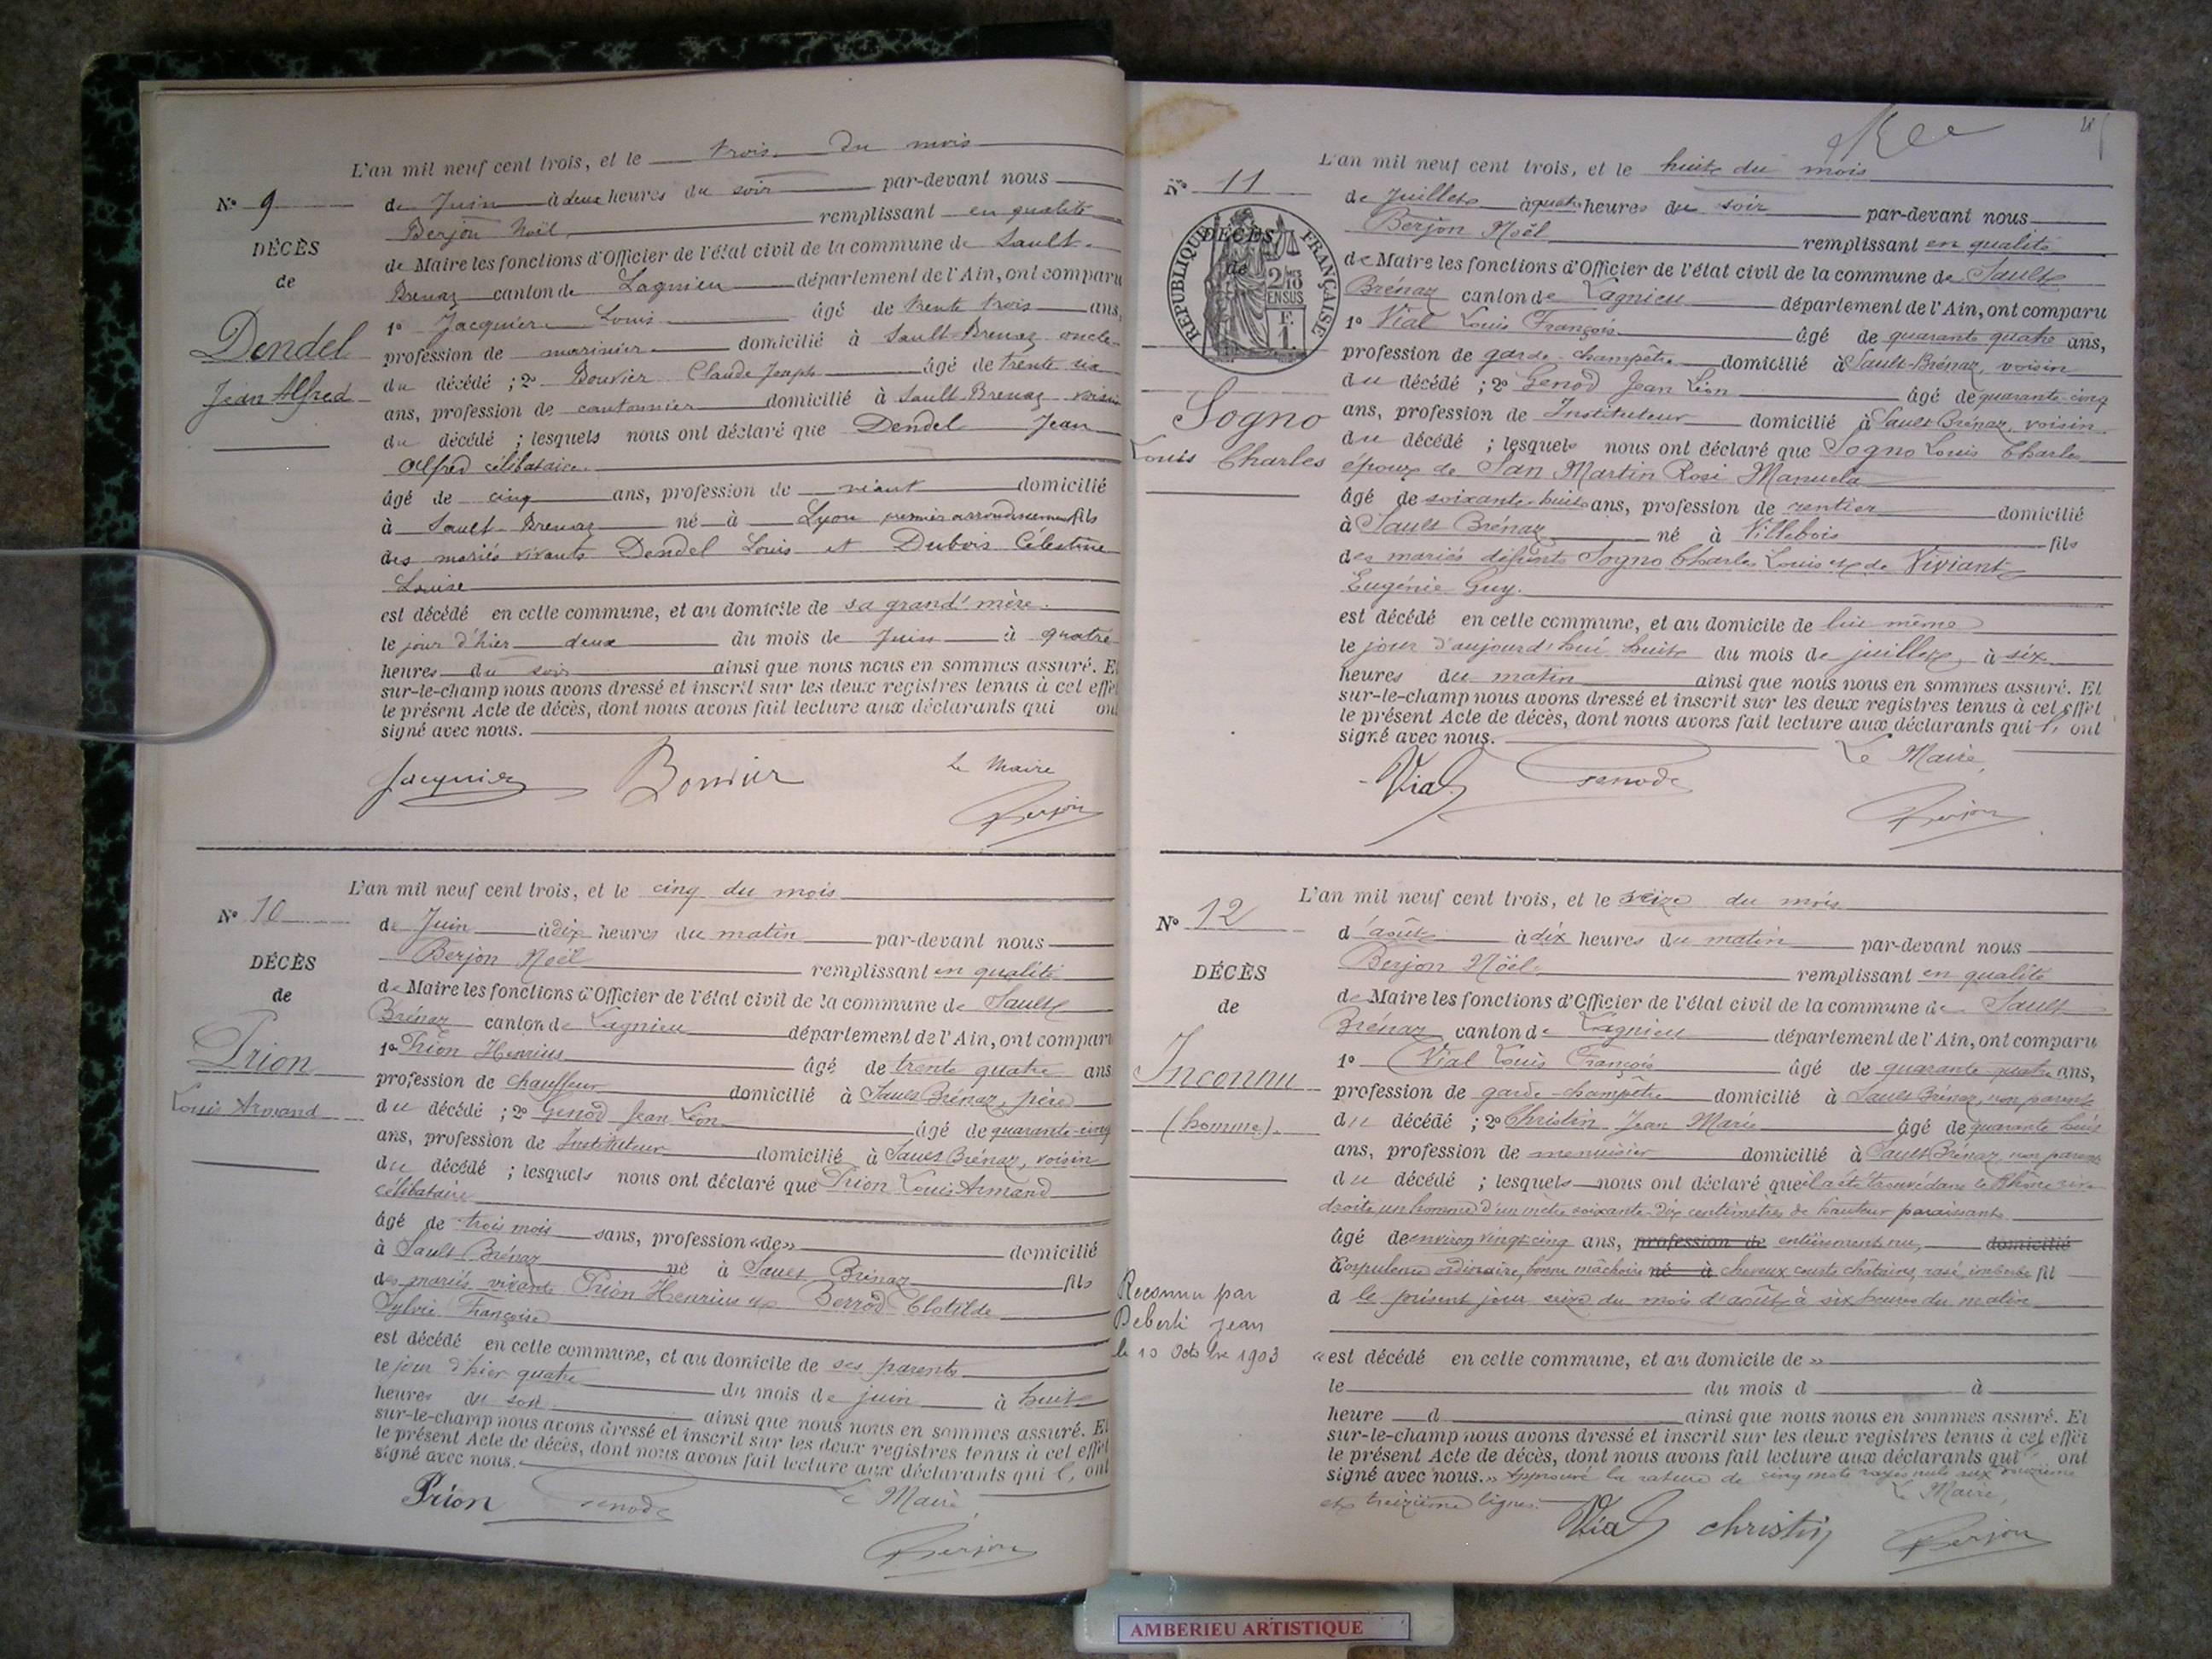 L'an mil neuf cent trois, et le trois du mois
N° 9
de Juin à deux heures du soir par-devant nous
Berjon Noël remplissant en qualité
DÉCÈS
de Maire les fonctions d'Officier de l'état civil de la commune de Sault-
de
Brenaz canton de Lagnieu département de l'Ain, ont comparu
1° Jacquier Louis âgé de trente trois ans,
Dendel
profession de marinier domicilié à Sault-Brenaz oncle
Jean Alfred
du décédé ; 2° Bouvier Claude Joseph âgé de trente six
ans, profession de cantonnier domicilié à Sault Brenaz voisin
du décédé ; lesquels nous ont déclaré que Dendel Jean
Alfred célibataire
âgé de cinq ans, profession de néant domicilié
à Sault-Brenaz né à Lyon premier arrondissement fils
des mariés vivants Dendel Louis et Dubois Célestine
Louise
est décédé en cette commune, et au domicile de sa grand'mère.
le jour d'hier deux du mois de Juin à quatre
heures du soir ainsi que nous nous en sommes assuré. Et
sur-le-champ nous avons dressé et inscrit sur les deux registres tenus à cet effet
le présent Acte de décès, dont nous avons fait lecture aux déclarants qui ont
signé avec nous.
Jacquier Bouvier Le Maire
Berjon
L'an mil neuf cent trois, et le cinq du mois
N° 10
de Juin à dix heures du matin par-devant nous
Berjon Noël remplissant en qualité
DÉCÈS
de Maire les fonctions d'Officier de l'état civil de la commune de Sault
de
Brénaz canton de Lagnieu département de l'Ain, ont comparu
1° Prion Henrius âgé de trente quatre ans
Prion
profession de chauffeur domicilié à Sault Brénaz, père
Louis Armand
du décédé ; 2° Genod Jean Léon âgé de quarante-cinq
ans, profession de Instituteur domicilié à Sault Brénaz, voisin
du décédé ; lesquels nous ont déclaré que Prion Louis Armand
célibataire
âgé de trois mois sans, profession «de» domicilié
à Sault Brénaz né à Sault Brénaz fils
des mariés vivants Prion Henrius et Berrod Clotilde
Sylvie Françoise
est décédé en cette commune, et au domicile de ses parents
le jour d'hier quatre du mois de juin à huit
heures du soir ainsi que nous nous en sommes assuré. Et
sur-le-champ nous avons dressé et inscrit sur les deux registres tenus à cet effet
le présent Acte de décès, dont nous avons fait lecture aux déclarants qui l' ont
signé avec nous.
Prion Genod Le Maire
Berjon
L'an mil neuf cent trois, et le huit du mois
N° 11
de Juillet à quatre heures du soir par-devant nous
Berjon Noël remplissant en qualité
DÉCÈS
de
RÉPUBLIQUE FRANÇAISE
2/10 EN SUS
F. 1.
de Maire les fonctions d'Officier de l'état civil de la commune de Sault
Brénaz canton de Lagnieu département de l'Ain, ont comparu
1° Vial Louis François âgé de quarante quatre ans,
profession de garde-champêtre domicilié à Sault-Brénaz, voisin
du décédé ; 2° Genod Jean Léon âgé de quarante-cinq
Sogno
ans, profession de Instituteur domicilié à Sault Brénaz, voisin
Louis Charles
du décédé ; lesquels nous ont déclaré que Sogno Louis Charles
époux de San Martin Rosi Manuela
âgé de soixante-huit ans, profession de rentier domicilié
à Sault Brénaz né à Villebois fils
des mariés défunts Sogno Charles Louis et de Viviant
Eugénie Guy.
est décédé en cette commune, et au domicile de lui même
le jour d'aujourd'hui huit du mois de juillet, à six
heures du matin ainsi que nous nous en sommes assuré. Et
sur-le-champ nous avons dressé et inscrit sur les deux registres tenus à cet effet
le présent Acte de décès, dont nous avons fait lecture aux déclarants qui l' ont
signé avec nous.
Le Maire,
Vial Genod
Berjon
L'an mil neuf cent trois, et le seize du mois
N° 12
d'août à dix heures du matin par-devant nous
Berjon Noël remplissant en qualité
DÉCÈS
de Maire les fonctions d'Officier de l'état civil de la commune de Sault
de
Brénaz canton de Lagnieu département de l'Ain, ont comparu
1° Vial Louis François âgé de quarante quatre ans,
Inconnu
profession de garde-champêtre domicilié à Sault Brénaz, non parent
(homme).
du décédé ; 2° Christin Jean Marie âgé de quarante huit
ans, profession de menuisier domicilié à Sault Brénaz, non parent
du décédé ; lesquels nous ont déclaré que il a été trouvé dans le Rhône rive
droite un homme d'un mètre soixante-dix centimètres de hauteur paraissant
âgé de environ vingt cinq ans, profession de entièrement nu, domicilié
à corpulence ordinaire, bonne mâchoire né à cheveux courts châtains, rasé, imberbe fil
d le présent jour seize du mois d'août à six heures du matin
Reconnu par
Deberti Jean
le 10 Octobre 1903
«est décédé en cette commune, et au domicile de»
le du mois d à
heure d ainsi que nous nous en sommes assuré. Et
sur-le-champ nous avons dressé et inscrit sur les deux registres tenus à cet effet
le présent Acte de décès, dont nous avons fait lecture aux déclarants qui ont
signé avec nous.» Approuvé la rature de cinq mots rayés nuls aux douzième
et treizième lignes. Le Maire,
Vial Christin Berjon
AMBERIEU ARTISTIQUE